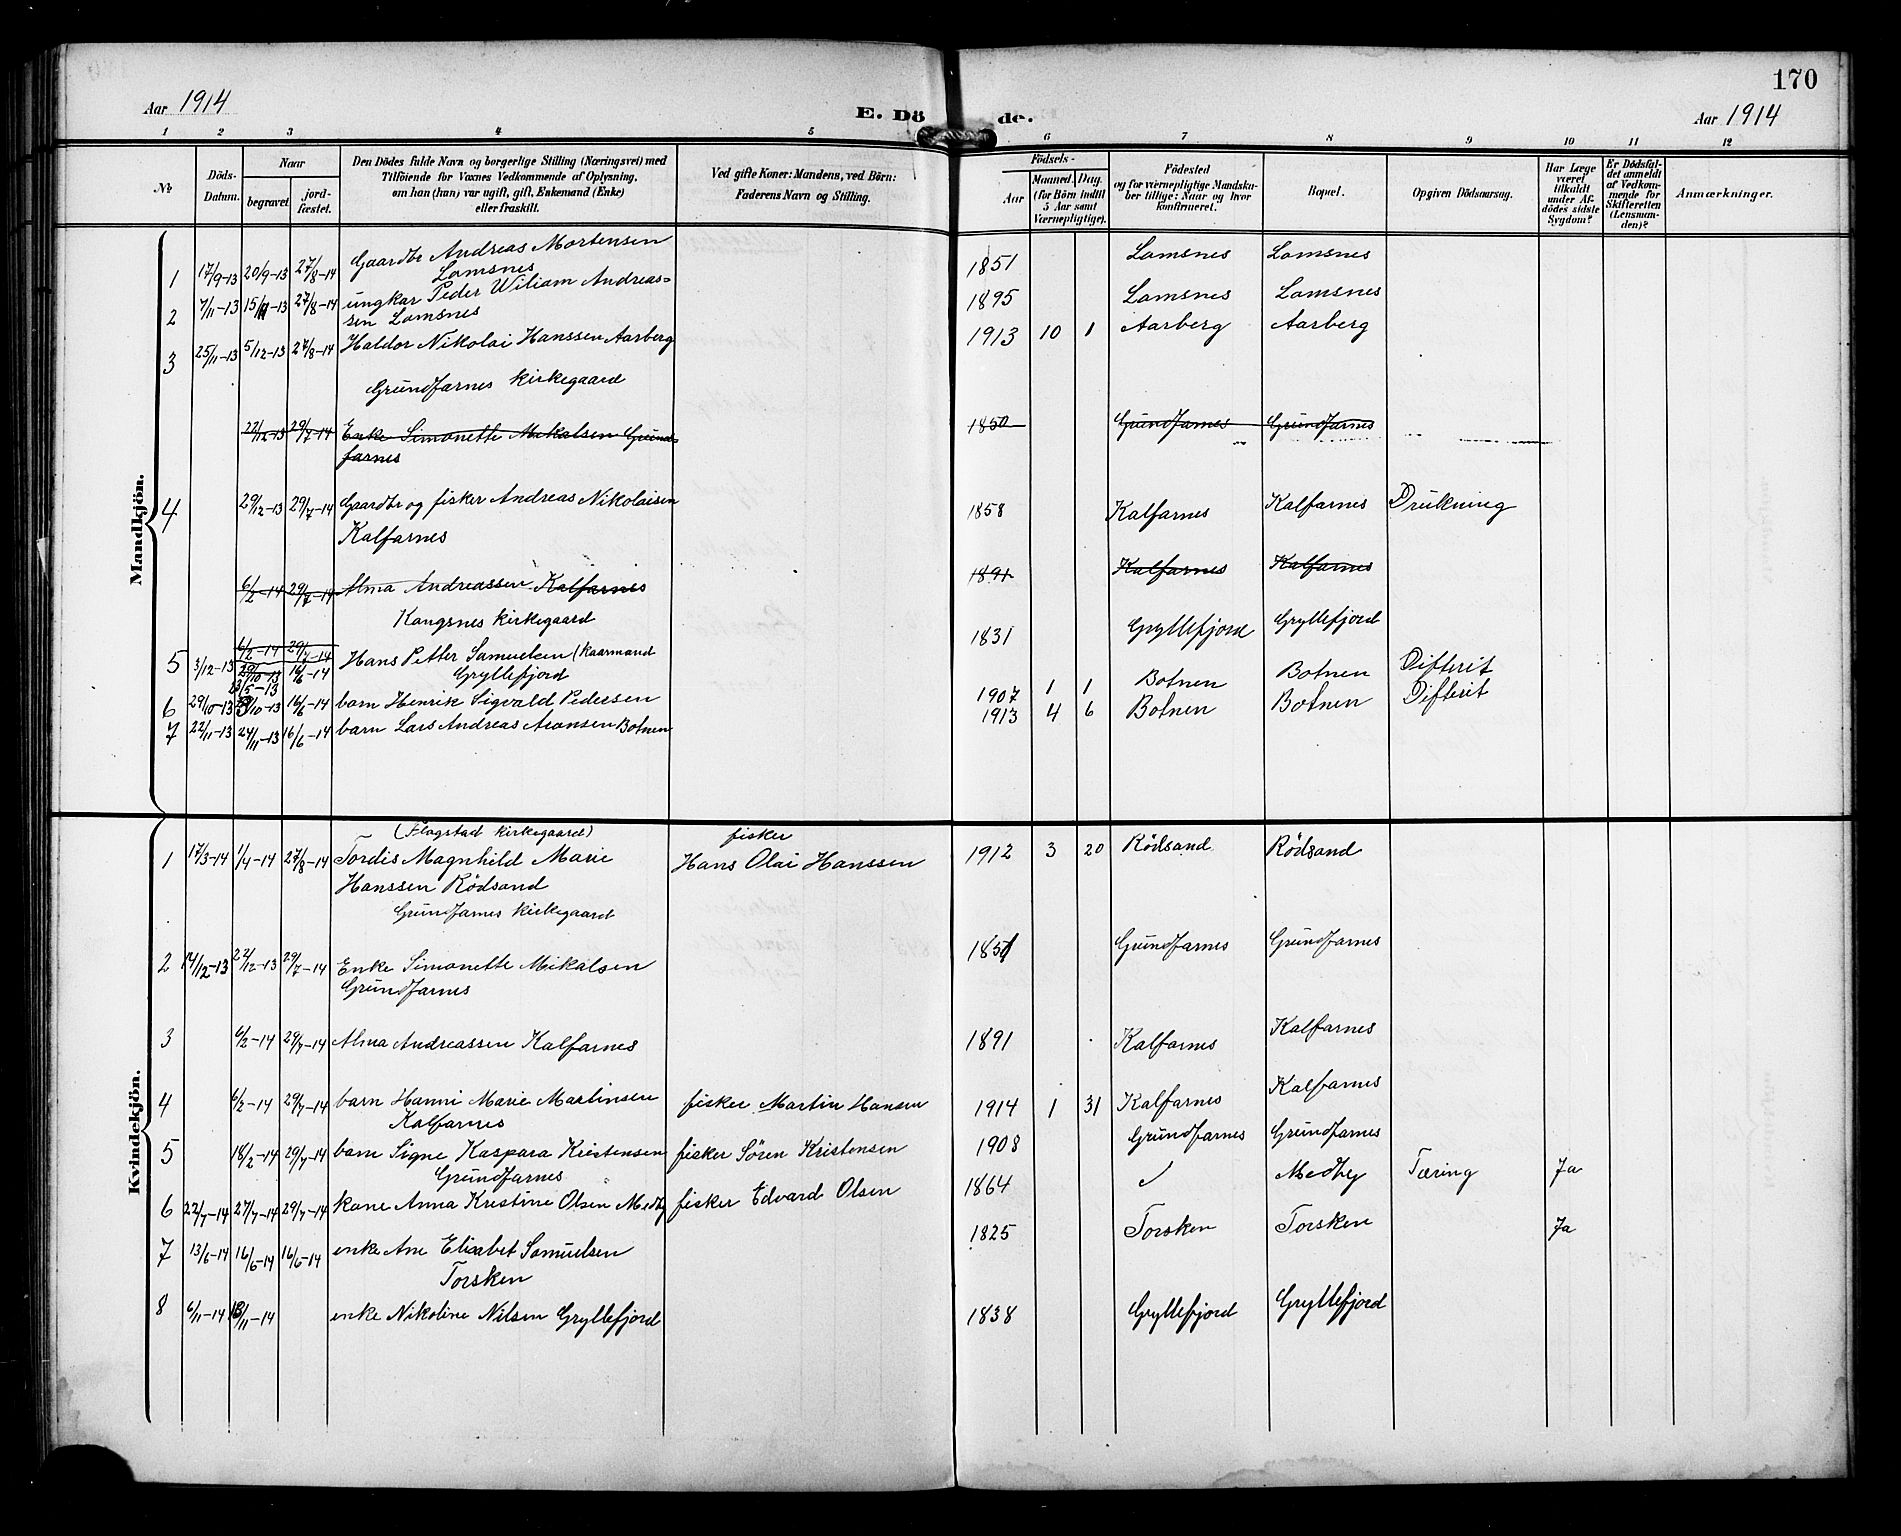 170
Aar 1914
E. Dö de.
Aar 1914
1 2 3 4 5 6 7 8 9 10 11 12
№
Döds-
Datum.
Naar
begravet
jord-
fæstet.
Den Dödes fulde Navn og borgerlige Stilling (Næringsvei) med
Tilföiende for Voxnes Vedkommende af Oplysning,
om han (hun) var ugift, gift, Enkemand (Enke)
eller fraskilt.
Ved gifte Koner: Mandens, ved Börn:
Faderens Navn og Stilling.
Födsels-
Aar
Maaned. Dag.
(for Börn indtil
5 Aar samt
Værnepligtige).
Födested
og for værnepligtige Mandska-
ber tillige: Naar og hvor
konfirmeret.
Bopæl.
Opgiven Dödsaarsag.
Har Læge
været
tilkaldt
under Af-
dödes sidste
Sygdom?
Er Dödsfal-
det anmeldt
af Vedkom-
mende for
Skifteretten
(Lensman-
den)?
Anmærkninger.
Mandkjön.
1 17/9-13 20/9-13 27/8-14 Gaardbr Andreas Mortensen 1851 Lomsnes Lomsnes
Lomsnes
2 7/11-13 15/11-13 27/8-14 ungkar Peder Wiliam Andreas= 1895 Lomsnes Lomsnes
sen Lomsnes
3 25/11-13 5/12-13 27/8-14 Haldor Nikolai Hanssen Aarberg 1913 10 1 Aarberg Aarberg
Grundfarnes kirkegaard
22/12-13 29/7-14 Enke Simonette Mikalsen Grund= 1850 Grundfarnes Grundfarnes
farnes
4 29/12-13 29/7-14 Gaardbr og fisker Andreas Nikolaisen 1858 Kalfarnes Kalfarnes Drukning
Kalfarnes
6/2-14 29/7-14 Alma Andreassen Kalfarnes 1891 Kalfarnes Kalfarnes
Kangsnes kirkegaard
6/2-14 29/7-14
5 3/12-13 16/6-14 Hans Petter Samuelsen (Kaarmand 1831 Gryllefjord Gryllefjord
Gryllefjord
6 29/10-13 16/6-14 barn Henrik Sigvald Pedersen 1907 1 1 Botnen Botnen Difterit
7 22/11-13 24/11-13 16/6-14 barn Lars Andreas Aronsen Botnen 1913 4 6 Botnen Botnen Difterit
Kvindekjön.
(Flagstad kirkegaard) fisker
1 17/3-14 1/4-14 27/8-14 Tordis Magnhild Marie Hans Olai Hanssen 1912 3 20 Rödsand Rödsand
Hanssen Rödsand
Grundfarnes kirkegaard
2 14/12-13 22/12-13 29/7-14 Enke Simonette Mikalsen 1851 Grundfarnes Grundfarnes
Grundfarnes
3 6/2-14 29/7-14 Alma Andreassen Kalfarnes 1891 Kalfarnes Kalfarnes
4 6/2-14 29/7-14 barn Hanni Marie Martinsen fisker Martin Hansen 1914 1 31 Kalfarnes Kalfarnes
Kalfarnes
5 18/2-14 29/7-14 barn Signe Kaspara Kristensen fisker Sören Kristensen 1908 Grundfarnes Grundfarnes
Grundfarnes
6 22/7-14 27/7-14 29/7-14 kone Anna Kristine Olsen Medby fisker Edvard Olsen 1864 Medby Tæring Ja
7 13/6-14 16/6-14 16/6-14 enke Ane Elisabet Samuelsen 1825 Torsken Torsken Ja
Torsken
8 6/11-14 13/11-14 enke Nikoline Nilsen Gryllefjord 1838 Gryllefjord Gryllefjord